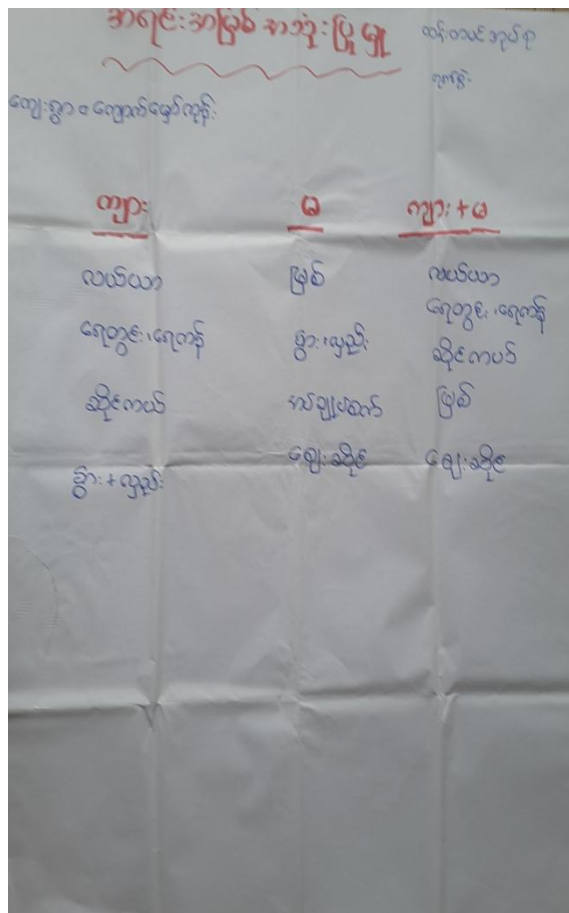 အရင်းအမြစ် အသုံးပြုမှု
ထန်းတပင်အုပ်စု
ကျေးရွာ - ကျောက်မှော်ကုန်း
ကျား မ ကျား + မ
လယ်ယာ မြစ် လယ်ယာ
ရေတွင်း၊ရေကန် နွား၊လှည်း ရေတွင်း၊ရေကန်
ဆိုင်ကယ် အပ်ချုပ်စက် ဆိုင်ကယ်
နွား + လှည်း ဈေးဆိုင် မြစ်
ဈေးဆိုင်